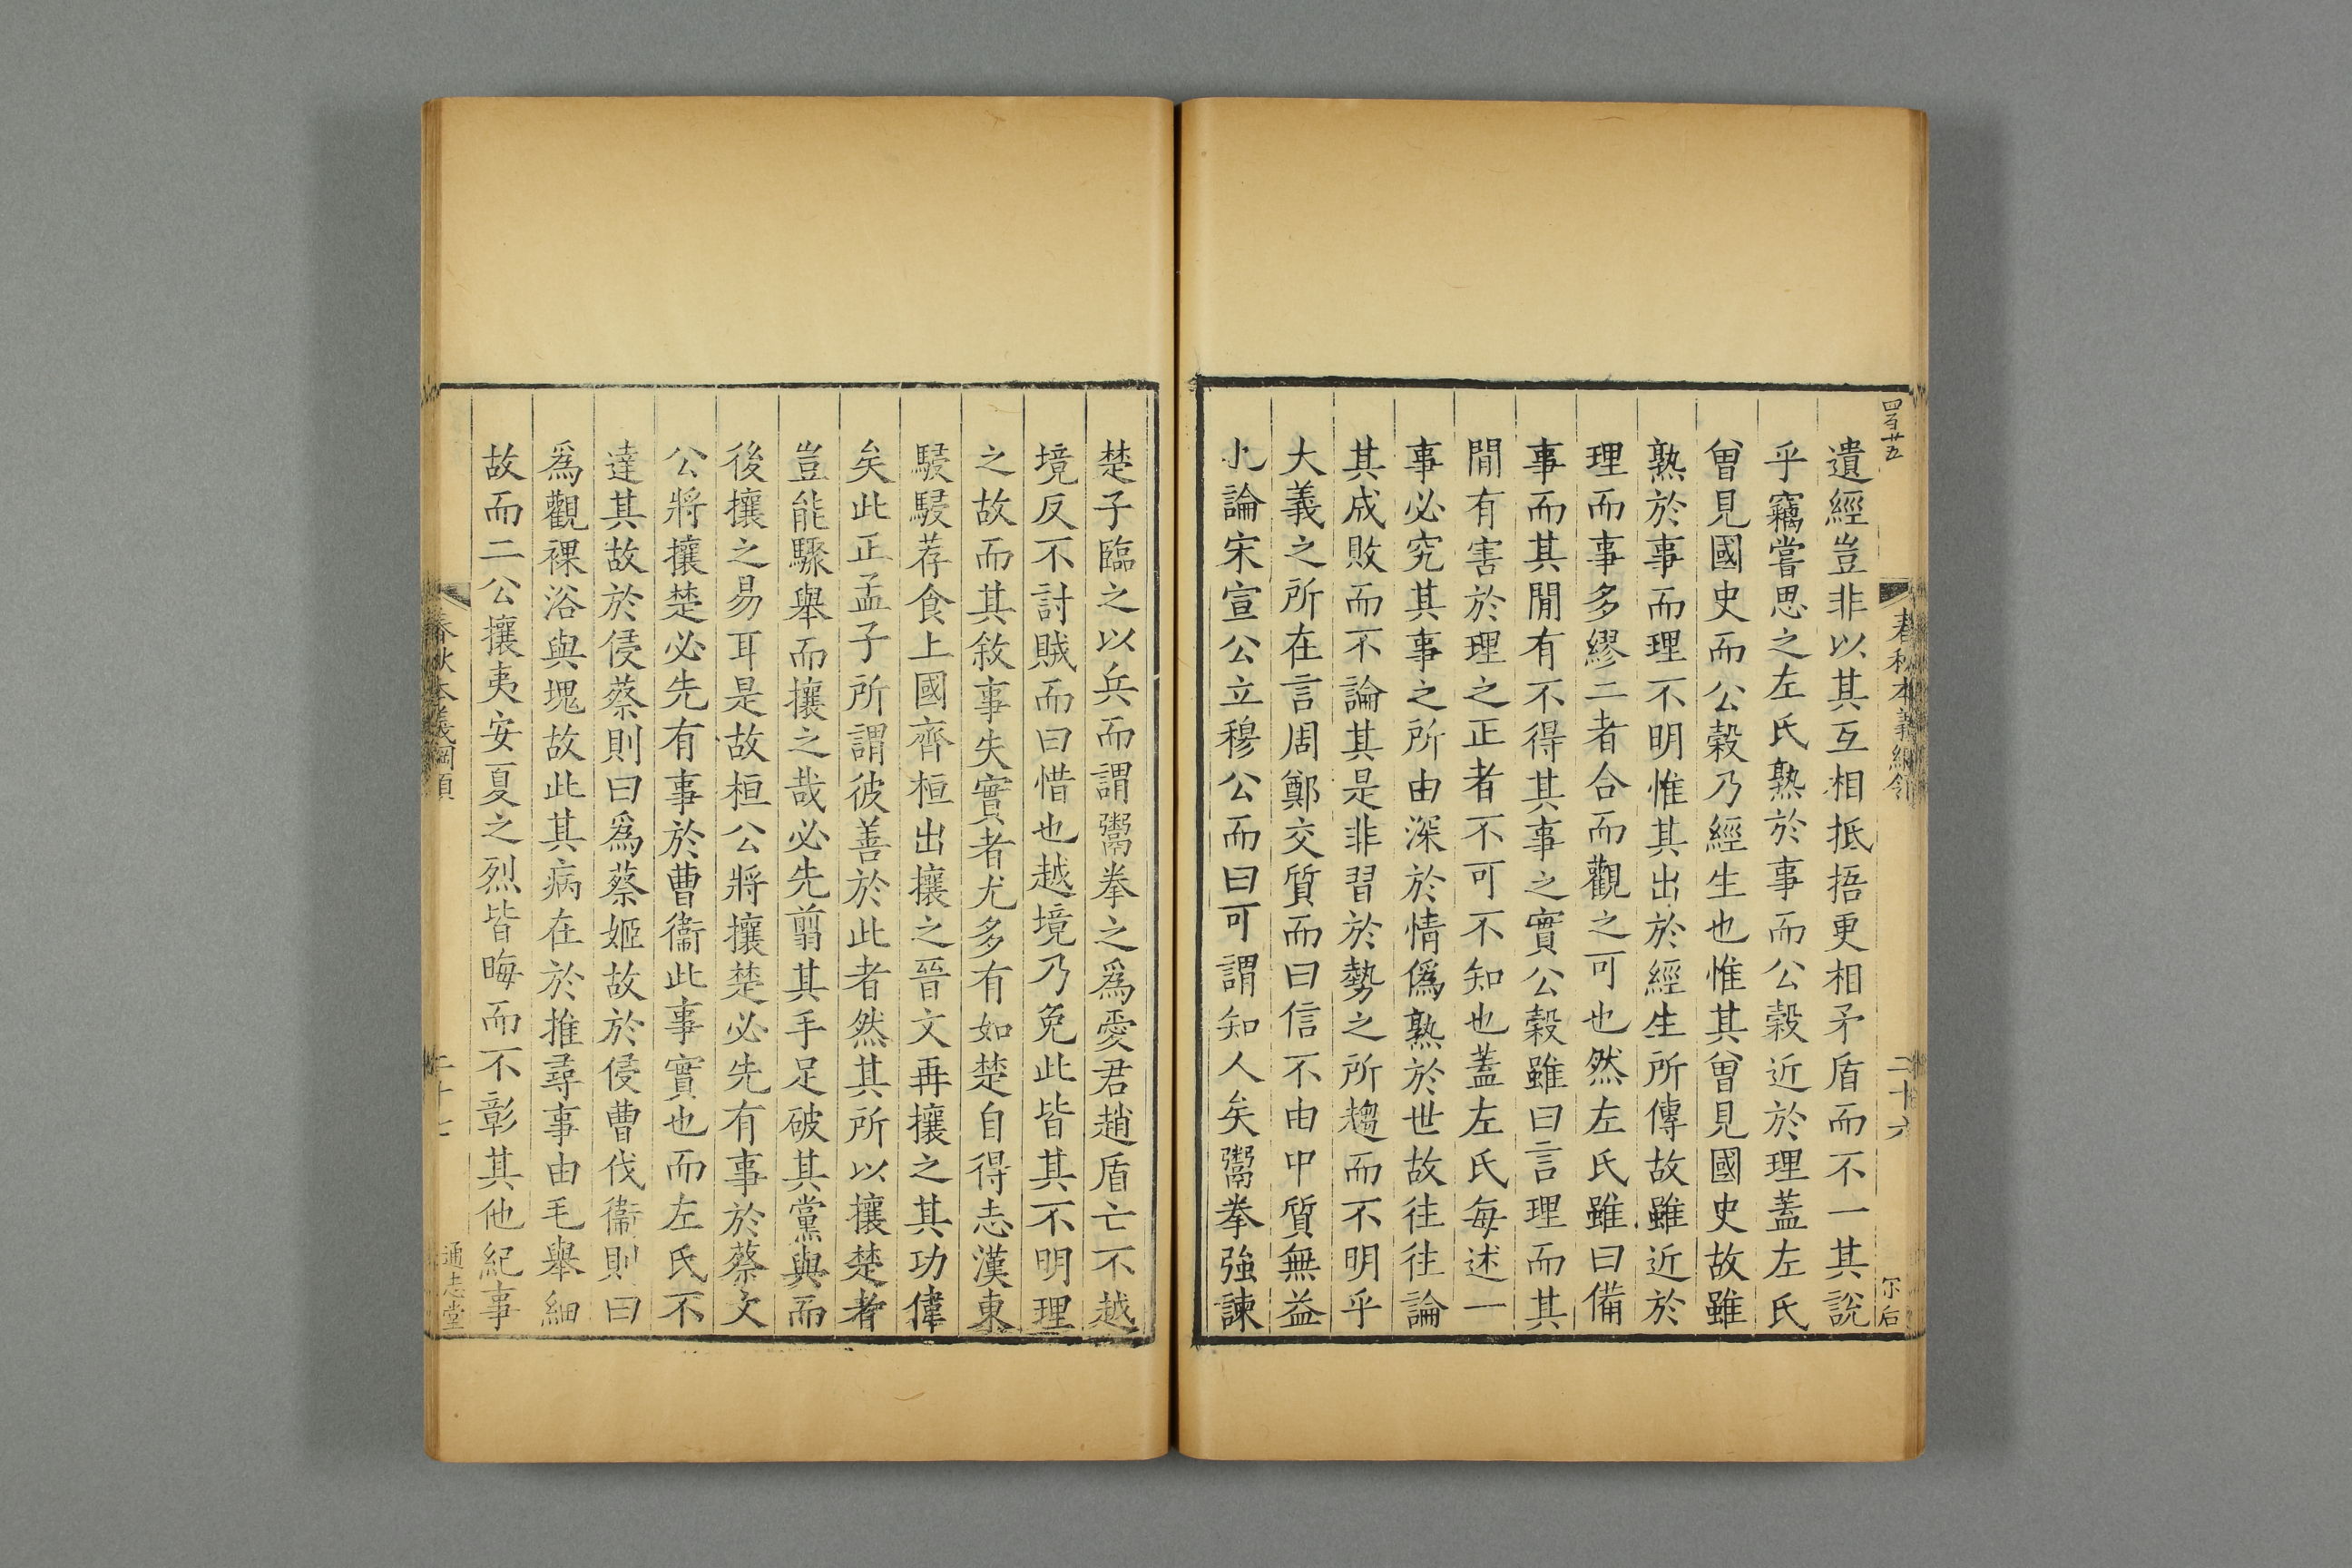 四百廿五
春秋本義綱領
二十六
遺經豈非以其互相抵捂更相矛盾而不一其說
乎竊嘗思之左氏熟於事而公穀近於理蓋左氏
曾見國史而公穀乃經生也惟其曾見國史故雖
熟於事而理不明惟其出於經生所傳故雖近於
理而事多繆二者合而觀之可也然左氏雖曰備
事而其閒有不得其事之實公穀雖曰言理而其
閒有害於理之正者不可不知也蓋左氏每述一
事必究其事之所由深於情僞熟於世故往往論
其成敗而不論其是非習於勢之所趨而不明乎
大義之所在言周鄭交質而曰信不由中質無益
也論宋宣公立穆公而曰可謂知人矣鬻拳強諫
楚子臨之以兵而謂鬻拳之爲愛君趙盾亡不越
境反不討賊而曰惜也越境乃免此皆其不明理
之故而其敘事失實者尤多有如楚自得志漢東
駸駸荐食上國齊桓出攘之晉文再攘之其功偉
矣此正孟子所謂彼善於此者然其所以攘楚者
豈能驟舉而攘之哉必先翦其手足破其黨與而
後攘之易耳是故桓公將攘楚必先有事於蔡文
公將攘楚必先有事於曹衞此事實也而左氏不
達其故於侵蔡則曰爲蔡姬故於侵曹伐衞則曰
爲觀裸浴與塊故此其病在於推尋事由毛舉細
故而二公攘夷安夏之烈皆晦而不彰其他紀事
春秋本義綱領
二十七
通志堂